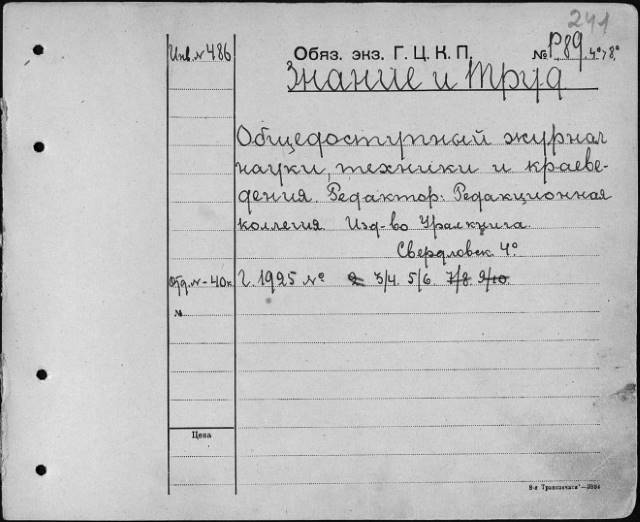 241
Инв. № 486
Обяз. экз. Г. Ц. К. П.
№ Р89. 4°, 8°
Знание и Труд
Общедоступный журнал
науки, техники и краеве-
дения. Редактор: Редакционная
коллегия Изд-во Уралкнига.
Свердловск 4°
№ - 40к.
Г. 1925 № 2 3/4. 5/6. 7/8. 9/10.
№
Цена